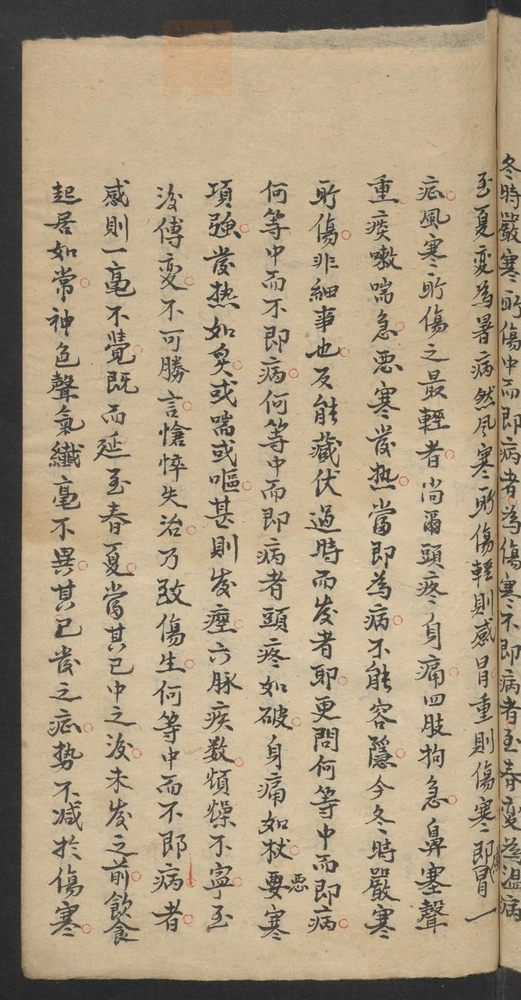 冬時嚴寒所傷中而即病者為傷寒不即病者至春變為溫病
至夏变為暑病然风寒所傷輕則感冒重則傷寒即感冒一
症風寒所傷之最輕者尚滔頭疼身痛四肢拘急鼻塞聲
重痰嗽喘急恶寒發热當即為病不能容隱今冬時嚴寒
所傷非細事也反能藏伏過時而发者耶更問何等中而即病
何等中而不即病何等中而即病者頭疼如破身痛如杖恶寒
項強發热如炙或喘或嘔甚則发痙六脉疾数煩燥不寧至
後傳变不可勝言愴悴失治乃致傷生何等中而不即病者
感則一毫不覺既而延至春夏當其已中之後未发之前飲食
起居如常神色聲氣纖毫不異其已發之症势不减於傷寒